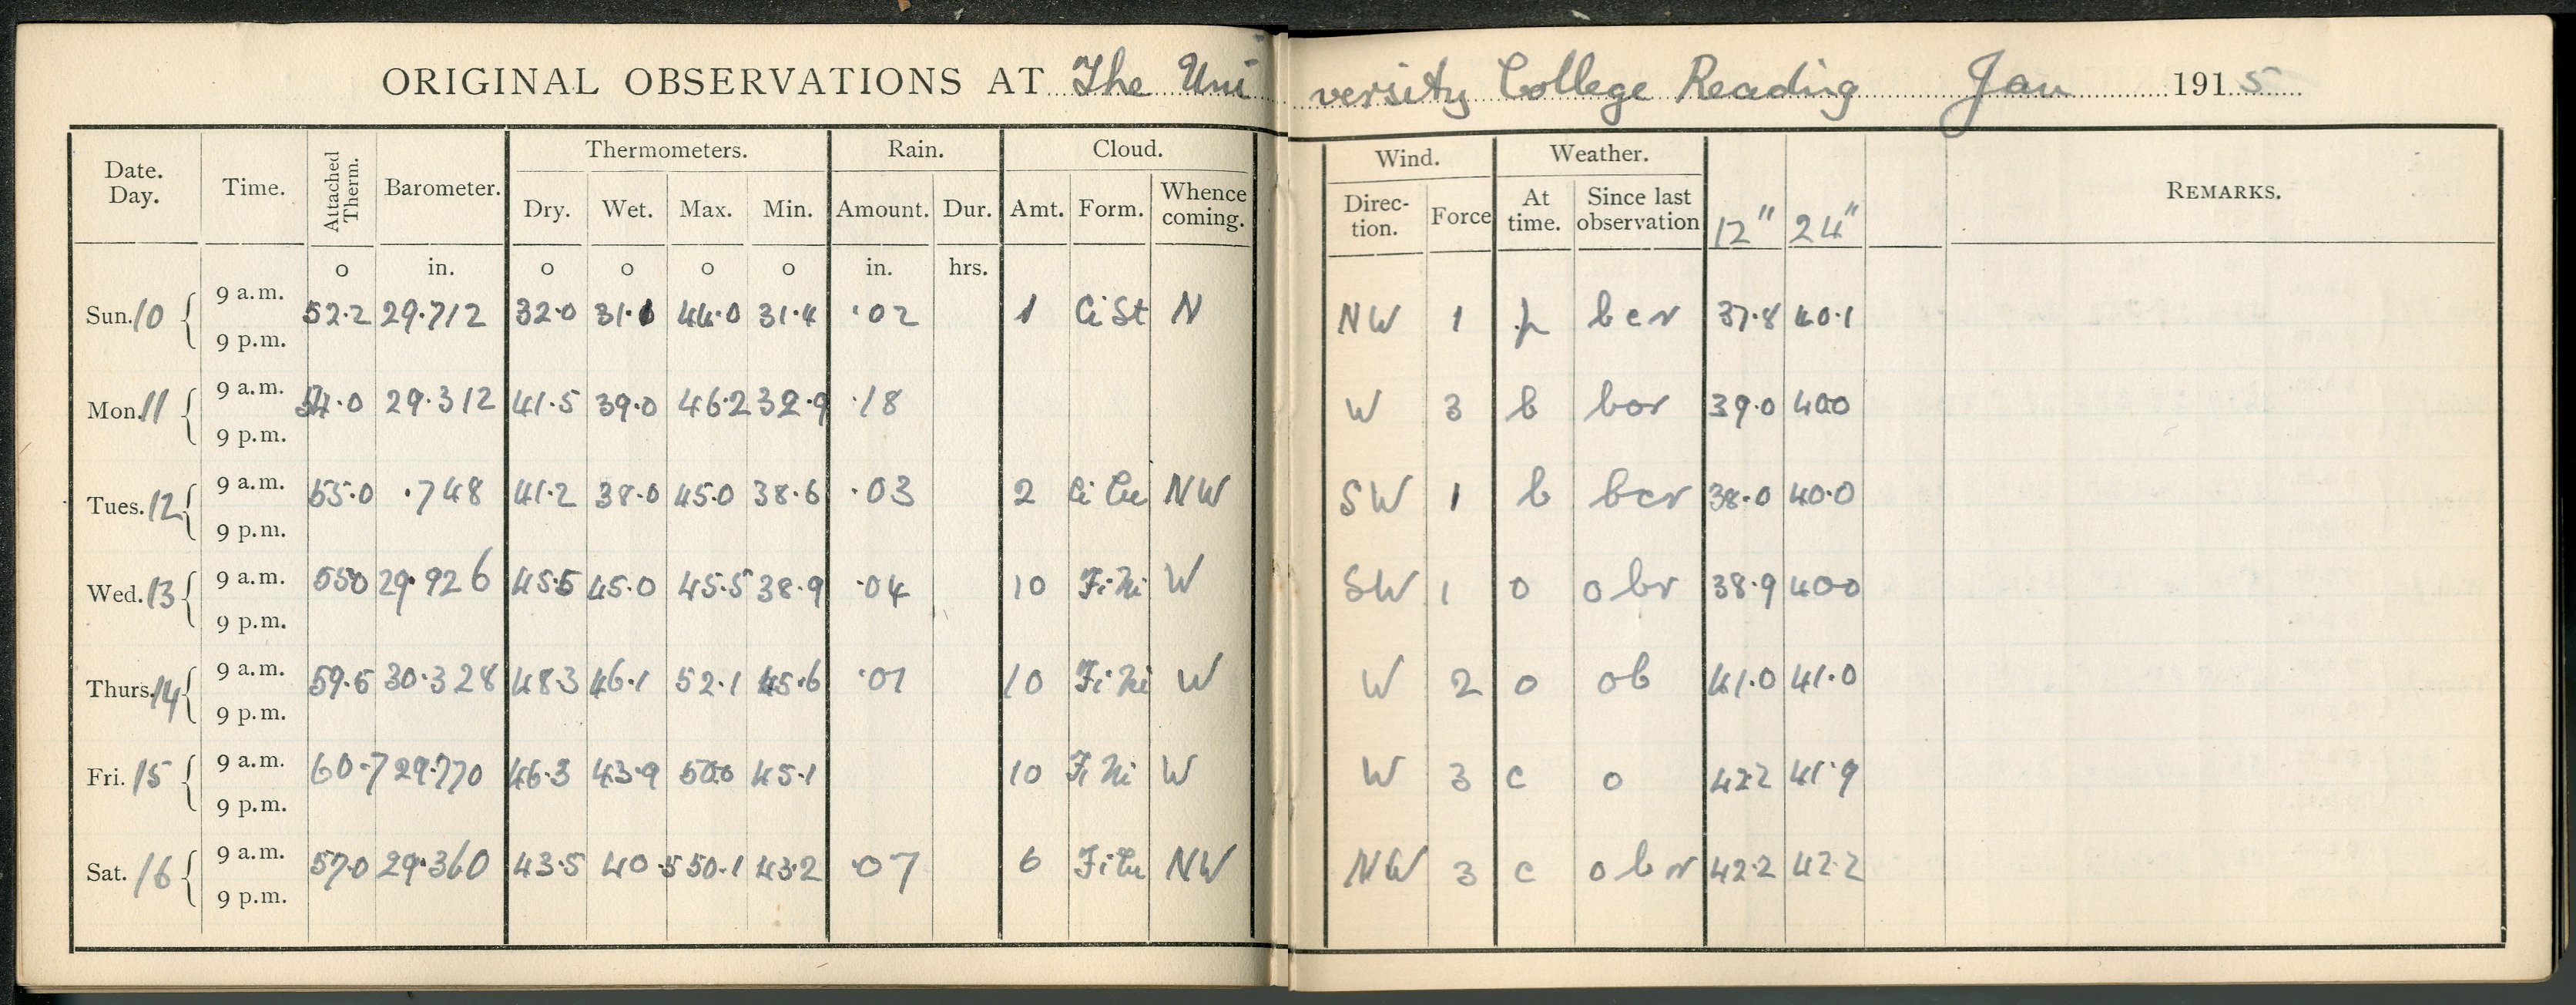 ORIGINAL OBSERVATIONS AT The University College Reading Jan 1915
Date. Day. Time. Attached Therm. Barometer. Thermometers. Rain. Cloud. Wind. Weather. REMARKS.
Dry. Wet. Max. Min. Amount. Dur. Amt. Form. Whence coming. Direc- tion. Force At time. Since last observation 12" 24"
o in. o o o o in. hrs.
9 a.m.
Sun. 10 52.2 29.712 32.0 31.1 44.0 31.4 .02 1 Ci St N NW 1 bcr 37.8 40.1
9 p.m.
9 a.m.
Mon. 11 54.0 29.312 41.5 39.0 46.2 32.9 .18 W 3 b bor 39.0 400
9 p.m.
9 a.m.
Tues. 12 55.0 .748 41.2 38.0 45.0 38.6 .03 2 Ci Cu NW SW 1 b bcr 38.0 40.0
9 p.m.
9 a.m.
Wed. 13 550 29.926 45.5 45.0 45.5 38.9 .04 10 Fi Ni W SW 1 o obr 38.9 400
9 p.m.
9 a.m.
Thurs. 14 59.5 30.328 48.3 46.1 52.1 45.6 .01 10 Fi Ni W W 2 o ob 41.0 41.0
9 p.m.
9 a.m.
Fri. 15 60.7 29.770 46.3 43.9 50.0 45.1 10 Fi Ni W W 3 c o 42.2 41.9
9 p.m.
9 a.m.
Sat. 16 57.0 29.360 43.5 40.5 50.1 43.2 .07 6 Fi Cu NW NW 3 c obr 42.2 42.2
9 p.m.